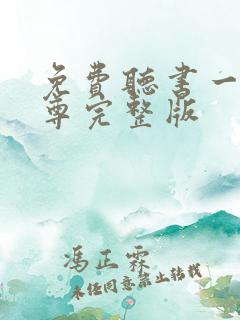 免費聽書一
尊完整版
馮正霖
未经同意禁止转载